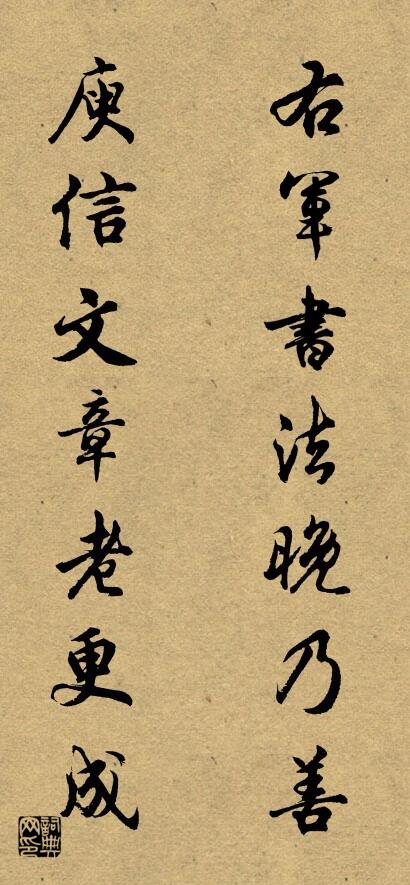 右軍書法晚乃善
庾信文章老更成
詞典網印